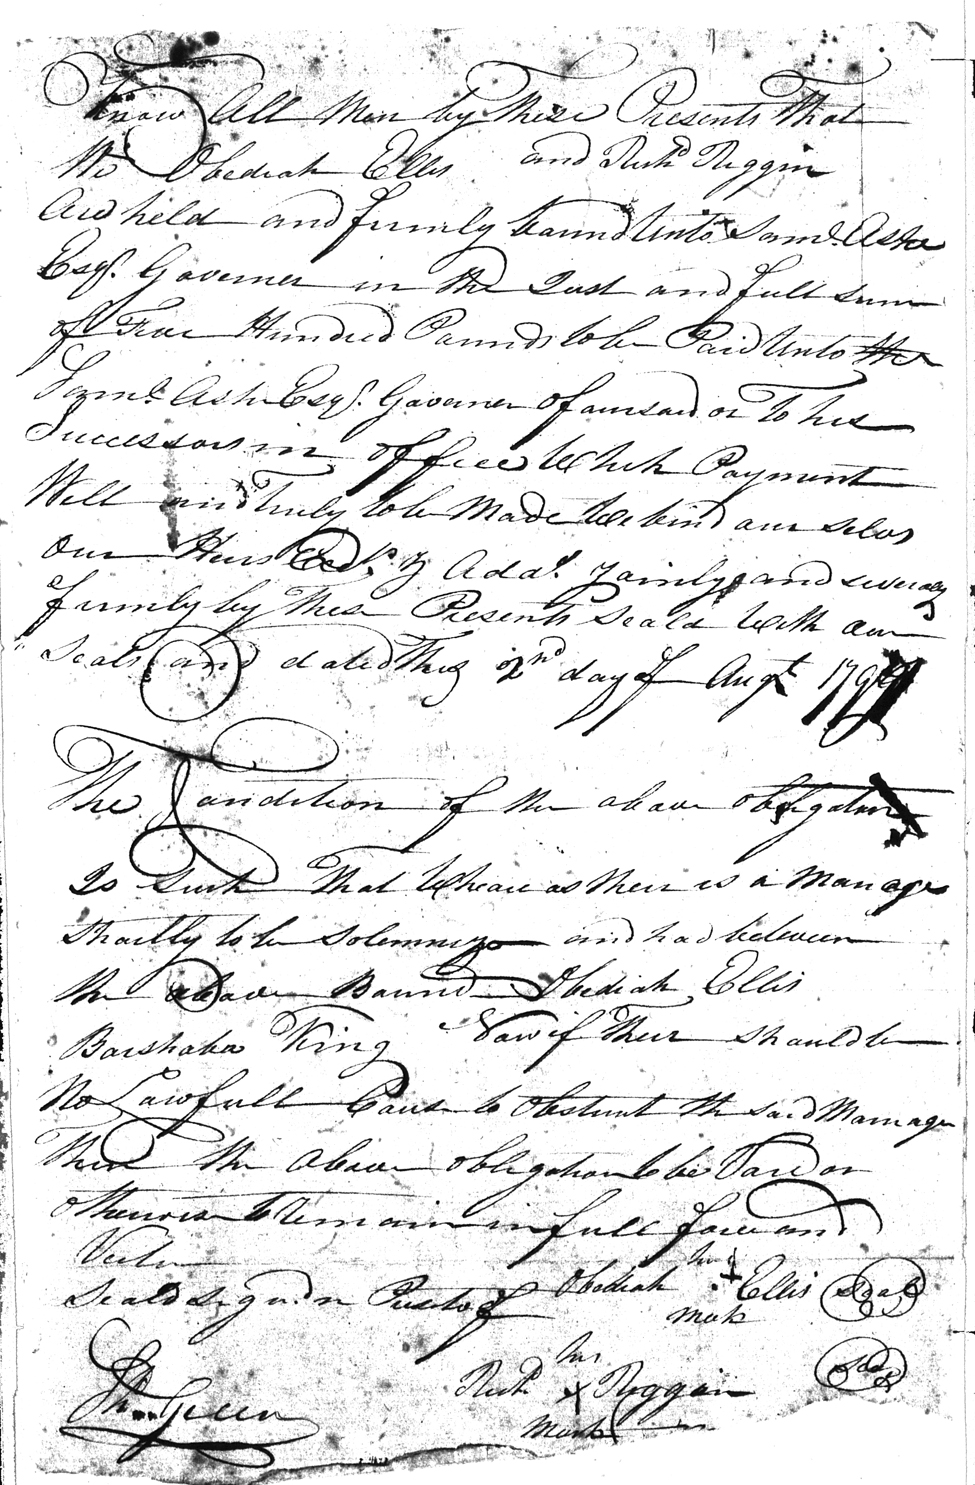 Know All Men by These Presents That
We Obediah Ellis and Richd Riggin
Are held and firmly bound Unto Saml. Ashe
Esqr. Governer in the Just and full sum
of Five Hundred Pounds to be Paid Unto the
Saml. Ashe Esqr. Governer Aforesaid or To his
Successors in office Which Payment
Well and Truly to be Made We bind our selvs
Our Heirs Exrs. & Adds. Jointly and severaly
firmly by These Presents Seald With our
Seals and dated This 2nd day of Augt 179
The Condition of the above obligation
Is Such That Wheare as their is a Marrage
Shortly to be Solemnizo and had between
the above Bound Obediah Ellis
Barshaba King Now if Their should be
No Lawfull Cause to Obstruct the said Marrage
Then the Above obligation to be Void or
otherwise to Remain in full force and
Vertu
Seald Signd in Presto of Obediah his + Ellis Seal
mark
his
Richd X Riggin Seal
mark
Th. Green